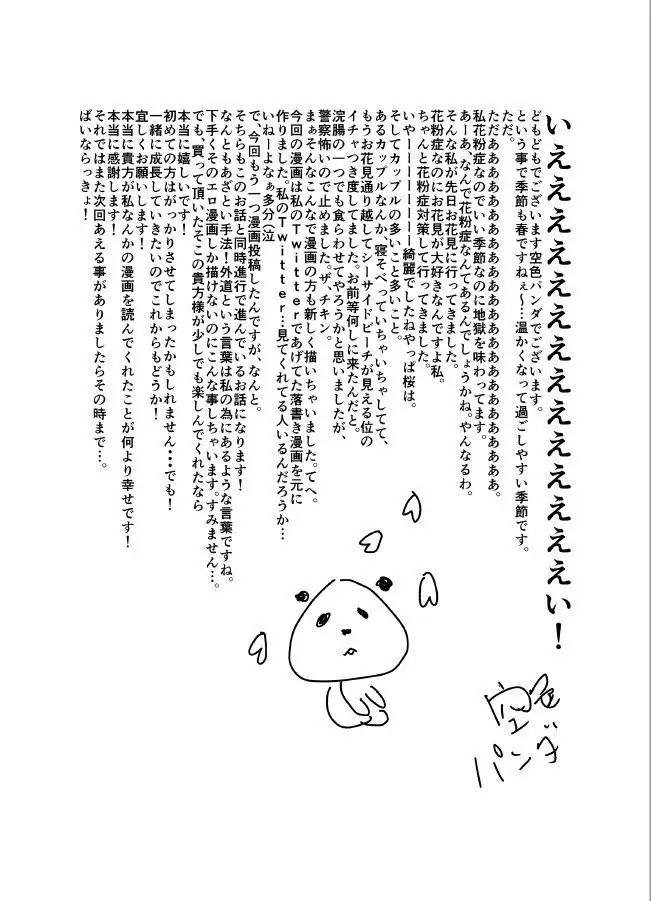 いえええええええええええええええええい！
どもどもでございます空色パンダでございます。
という事で季節も春ですねぇ～…温かくなって過ごしやすい季節です。
ただ。
ただああああああああああああああああああああああ。
私花粉症なのでいい季節なのに地獄を味わってます。
あーあ、なんで花粉症なんてあるんでしょうかね。やんなるわ。
そんな私が先日お花見に行ってきました。
花粉症なのにお花見が大好きなんですよ私。
ちゃんと花粉症対策して行ってきました。
いやーーーーーーー綺麗でしたねやっぱ桜は。
そしてカップルの多いこと多いこと。
あるカップルなんか、寝そべっていちゃいちゃしてて、
もうお花見通り越してシーサイドビーチが見える位の
イチャつき度してました。お前等何しに来たんだと。
浣腸の一つでも食らわせてやろうかと思いましたが、
警察怖いので止めました。ザ、チキン。
まぁそんなこんなで漫画の方も新しく描いちゃいました。てへ。
今回の漫画は私のTwitterであげてた落書き漫画を元に
作りました。私のTwitter…見てくれてる人いるんだろうか…
いねーよなぁ多分(泣
で、今回もう一つ漫画投稿したんですが、なんと。
そちらもこのお話と同時進行で進んでいるお話になります！
なんともあざとい手法！外道という言葉は私の為にあるような言葉ですね。
下手くそのエロ漫画しか描けないのにこんな事しちゃいます。すみません…。
でも、買って頂いたそこの貴方様が少しでも楽しんでくれたなら
本当に嬉しいです！
初めての方はがっかりさせてしまったかもしれません・・・でも！
一緒に成長していきたいのでこれからもどうか！
宜しくお願いします！
本当に貴方が私なんかの漫画を読んでくれたことが何より幸せです！
本当に感謝します！
それではまた次回あえる事がありましたらその時まで…。
ばいならっきょ！
空色
パンダ